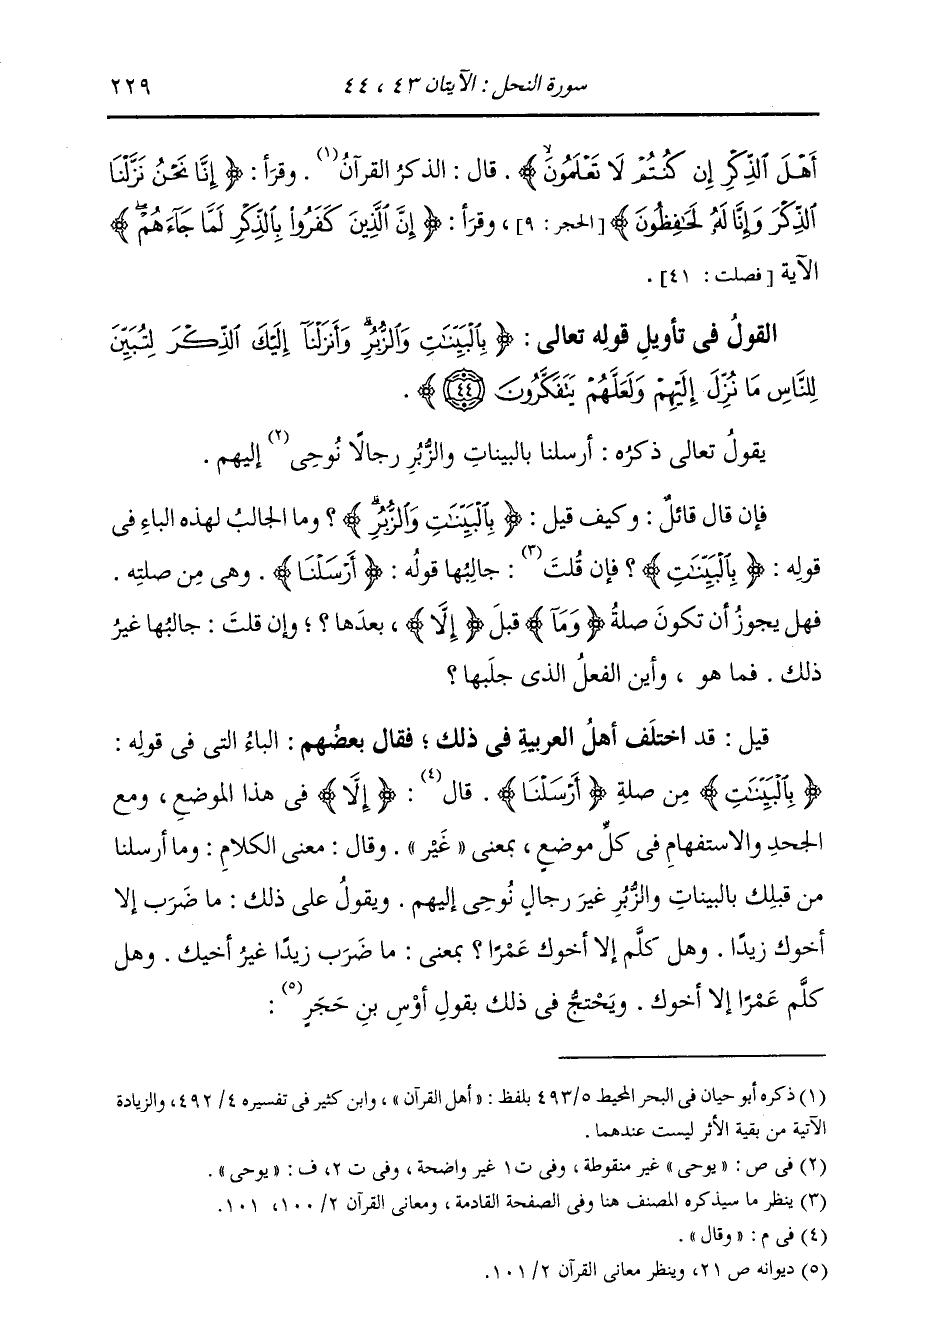 سورة النحل : الآيتان ٤٣ ، ٤٤ ٢٢٩
أَهْلَ ٱلذِّكْرِ إِن كُنتُمْ لَا تَعْلَمُونَ ﴾ . قال : الذكرُ القرآنُ(١) . وقرَأ : ﴿ إِنَّا نَحْنُ نَزَّلْنَا
ٱلذِّكْرَ وَإِنَّا لَهُۥ لَحَٰفِظُونَ ﴾ [الحجر : ٩] ، وقرَأ : ﴿ إِنَّ ٱلَّذِينَ كَفَرُواْ بِٱلذِّكْرِ لَمَّا جَآءَهُمْۖ ﴾
الآية [فصلت : ٤١] .
القولُ فى تأويلِ قولِه تعالى : ﴿ بِٱلْبَيِّنَٰتِ وَٱلزُّبُرِۗ وَأَنزَلْنَآ إِلَيْكَ ٱلذِّكْرَ لِتُبَيِّنَ
لِلنَّاسِ مَا نُزِّلَ إِلَيْهِمْ وَلَعَلَّهُمْ يَتَفَكَّرُونَ ٤٤ ﴾ .
يقولُ تعالى ذكرُه : أرسلنا بالبيناتِ والزُّبُرِ رجالًا نُوحِى(٢) إليهم .
فإن قال قائلٌ : وكيف قيل : ﴿ بِٱلْبَيِّنَٰتِ وَٱلزُّبُرِۗ ﴾ ؟ وما الجالبُ لهذه الباءِ فى
قولِه : ﴿ بِٱلْبَيِّنَٰتِ ﴾ ؟ فإن قُلتَ(٣) : جالِبُها قولُه : ﴿ أَرْسَلْنَا ﴾ . وهى مِن صلتِه .
فهل يجوزُ أن تكونَ صلةُ ﴿ وَمَآ ﴾ قبلَ ﴿ إِلَّا ﴾ ، بعدَها ؟ ؛ وإن قلتَ : جالبُها غيرُ
ذلك . فما هو ، وأين الفعلُ الذى جلَبها ؟
قيل : قد اختلَف أهلُ العربيةِ فى ذلك ؛ فقال بعضُهم : الباءُ التى فى قولِه :
﴿ بِٱلْبَيِّنَٰتِ ﴾ مِن صلةِ ﴿ أَرْسَلْنَا ﴾ . قال(٤) : ﴿ إِلَّا ﴾ فى هذا الموضعِ ، ومع
الجحدِ والاستفهامِ فى كلِّ موضعٍ ، بمعنى « غَيْر » . وقال : معنى الكلامِ : وما أرسلنا
من قبلِك بالبيناتِ والزُّبُرِ غيرَ رجالٍ نُوحِى إليهم . ويقولُ على ذلك : ما ضَرَب إلا
أخوك زيدًا . وهل كلَّم إلا أخوك عَمْرًا ؟ بمعنى : ما ضَرَب زيدًا غيرُ أخيك . وهل
كلَّم عَمْرًا إلا أخوك . ويَحْتجُّ فى ذلك بقولِ أوْسِ بنِ حَجَرٍ(٥) :
(١) ذكره أبو حيان فى البحر المحيط ٤٩٣/٥ بلفظ : « أهل القرآن » ، وابن كثير فى تفسيره ٤٩٢/٤، والزيادة
الآتية من بقية الأثر ليست عندهما .
(٢) فى ص : « يوحى » غير منقوطة ، وفى ت١ غير واضحة ، وفى ت ٢، ف : « يوحى » .
(٣) ينظر ما سيذكره المصنف هنا وفى الصفحة القادمة ، ومعانى القرآن ٢/ ١٠٠، ١٠١.
(٤) فى م : « وقال » .
(٥) ديوانه ص ٢١، وينظر معانى القرآن ٢/ ١٠١.